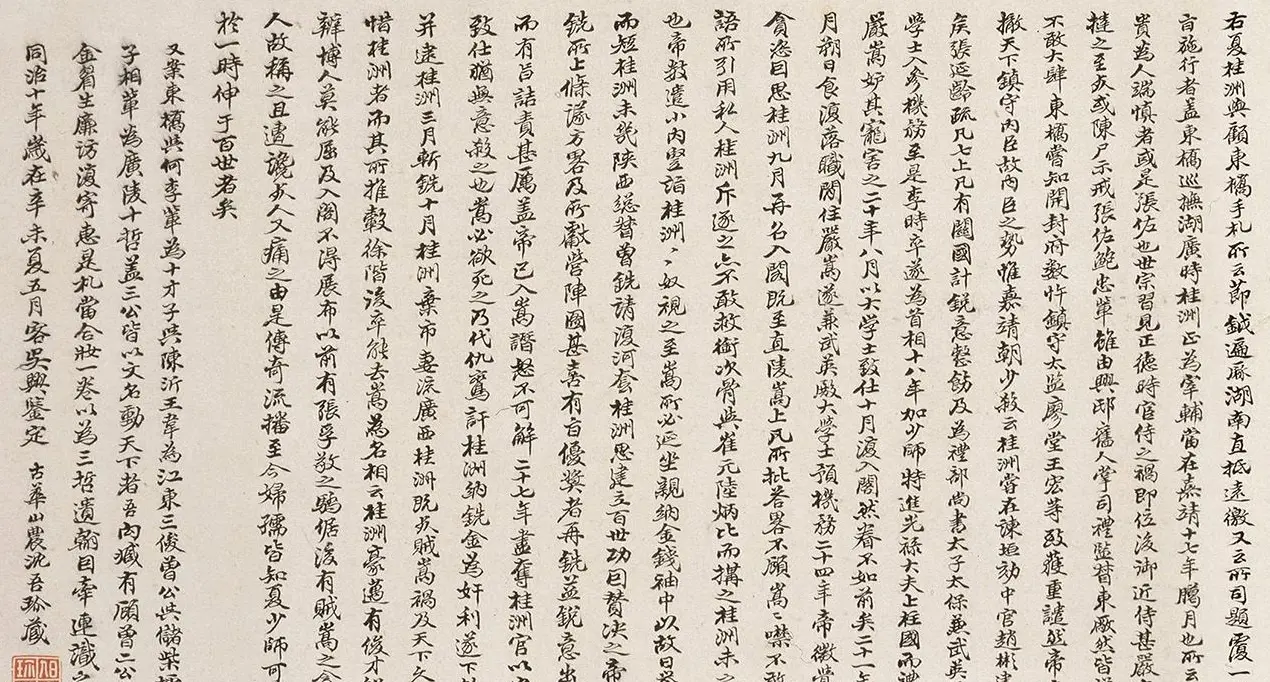 右夏桂洲與顧東橋手札所云節鉞遍歷湖南直抵遠徼又云所司題覆一
旨施行者蓋東橋巡撫湖廣時桂洲正為宰輔當在嘉靖十七年臈月也所云
貴為人端慎者或是張佐也世宗習見正德時官侍之禍即位後御近侍甚嚴
撻之至死或陳尸示戒張佐鮑忠輩雖由興邸舊人掌司禮監督東厰然皆
不敢大肆東橋嘗知開封府數忤鎮守太監廖堂王宏等致蒙重譴然帝
撤天下鎮守內臣故內臣之勢惟嘉靖朝少殺云桂洲嘗在諫垣劾中官趙彬建
矦張延齡疏凡七上凡有關國計銳意整飭及為禮部尚書太子太保兼武英
學士入參機務至是李時卒遂為首相十八年加少師特進光祿大夫上柱國而
嚴嵩妒其寵害之二十年八月以大學士致仕十月復入閣然眷不如前矣二十一年
月朔日食復落職閒住嚴嵩遂兼武英殿大學士預機務二十四年帝微覺
貪恣因思桂洲九月再召入閣既至直陵嵩上凡所批荅畧不顧嵩〻噤不敢
語所引用私人桂洲斥逐之亦不敢救銜次骨與崔元陸炳比而搆之桂洲未之
也帝數遣小內豎詣桂洲〻奴視之至嵩所必延坐親納金錢袖中以故日譽
而短桂洲未幾陝西總督曾銑請復河套桂洲思建立百世功因贊決之帝
銑所上條議方畧及所獻營陣圖甚喜有旨優獎者再銑益銳意出
而有旨詰責甚厲蓋帝已入嵩譖怒不可解二十七年盡奪桂洲官以
致仕猶無意殺之也嵩必欲死之乃代仇鸞訐桂洲納銑金為奸利遂下
并逮桂洲三月斬銑十月桂洲棄市妻流廣西桂洲既死賊嵩禍及天下久
惜桂洲者而其所推轂徐階後卒能去嵩為名相云桂洲豪邁有俊才
辯博人莫能屈及入閣不得展布以前有張孚敬之鴟倨後有賊嵩之
人故稱之且遭讒死人人痛之由是傳奇流播至今婦孺皆知夏少師可
於一時伸于百世者矣
又案東橋與何李輩為十才子與陳沂王韋為江東三俊曾公與儲柴
子相輩為廣陵十哲蓋三公皆以文名動天下者吾內臧有顧曾二公
金眉生廉訪復寄惠是札當合妝一卷以為三哲遺翰因牽連識之
同治十年歲在辛未夏五月客吳興鑒定 古華山農沈吾珍藏